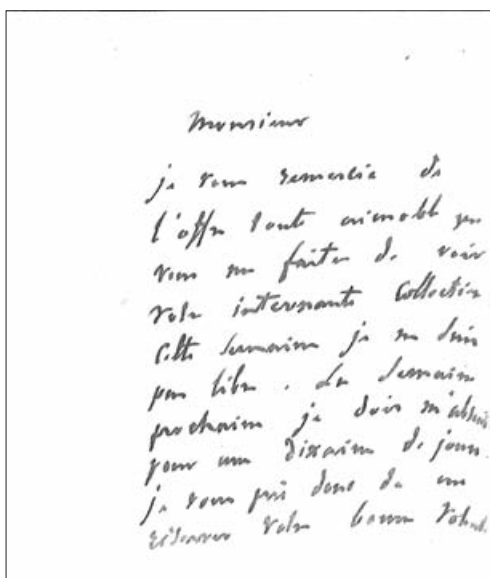 Monsieur
je vous remercie de
l'offre toute aimable que
vous me faites de voir
votre interessante collection
cette semaine je ne suis
pas libre. La semaine
prochaine je dois m'absen
pour une dizaine de jours.
je vous prie donc de me
réserver votre bonne volont